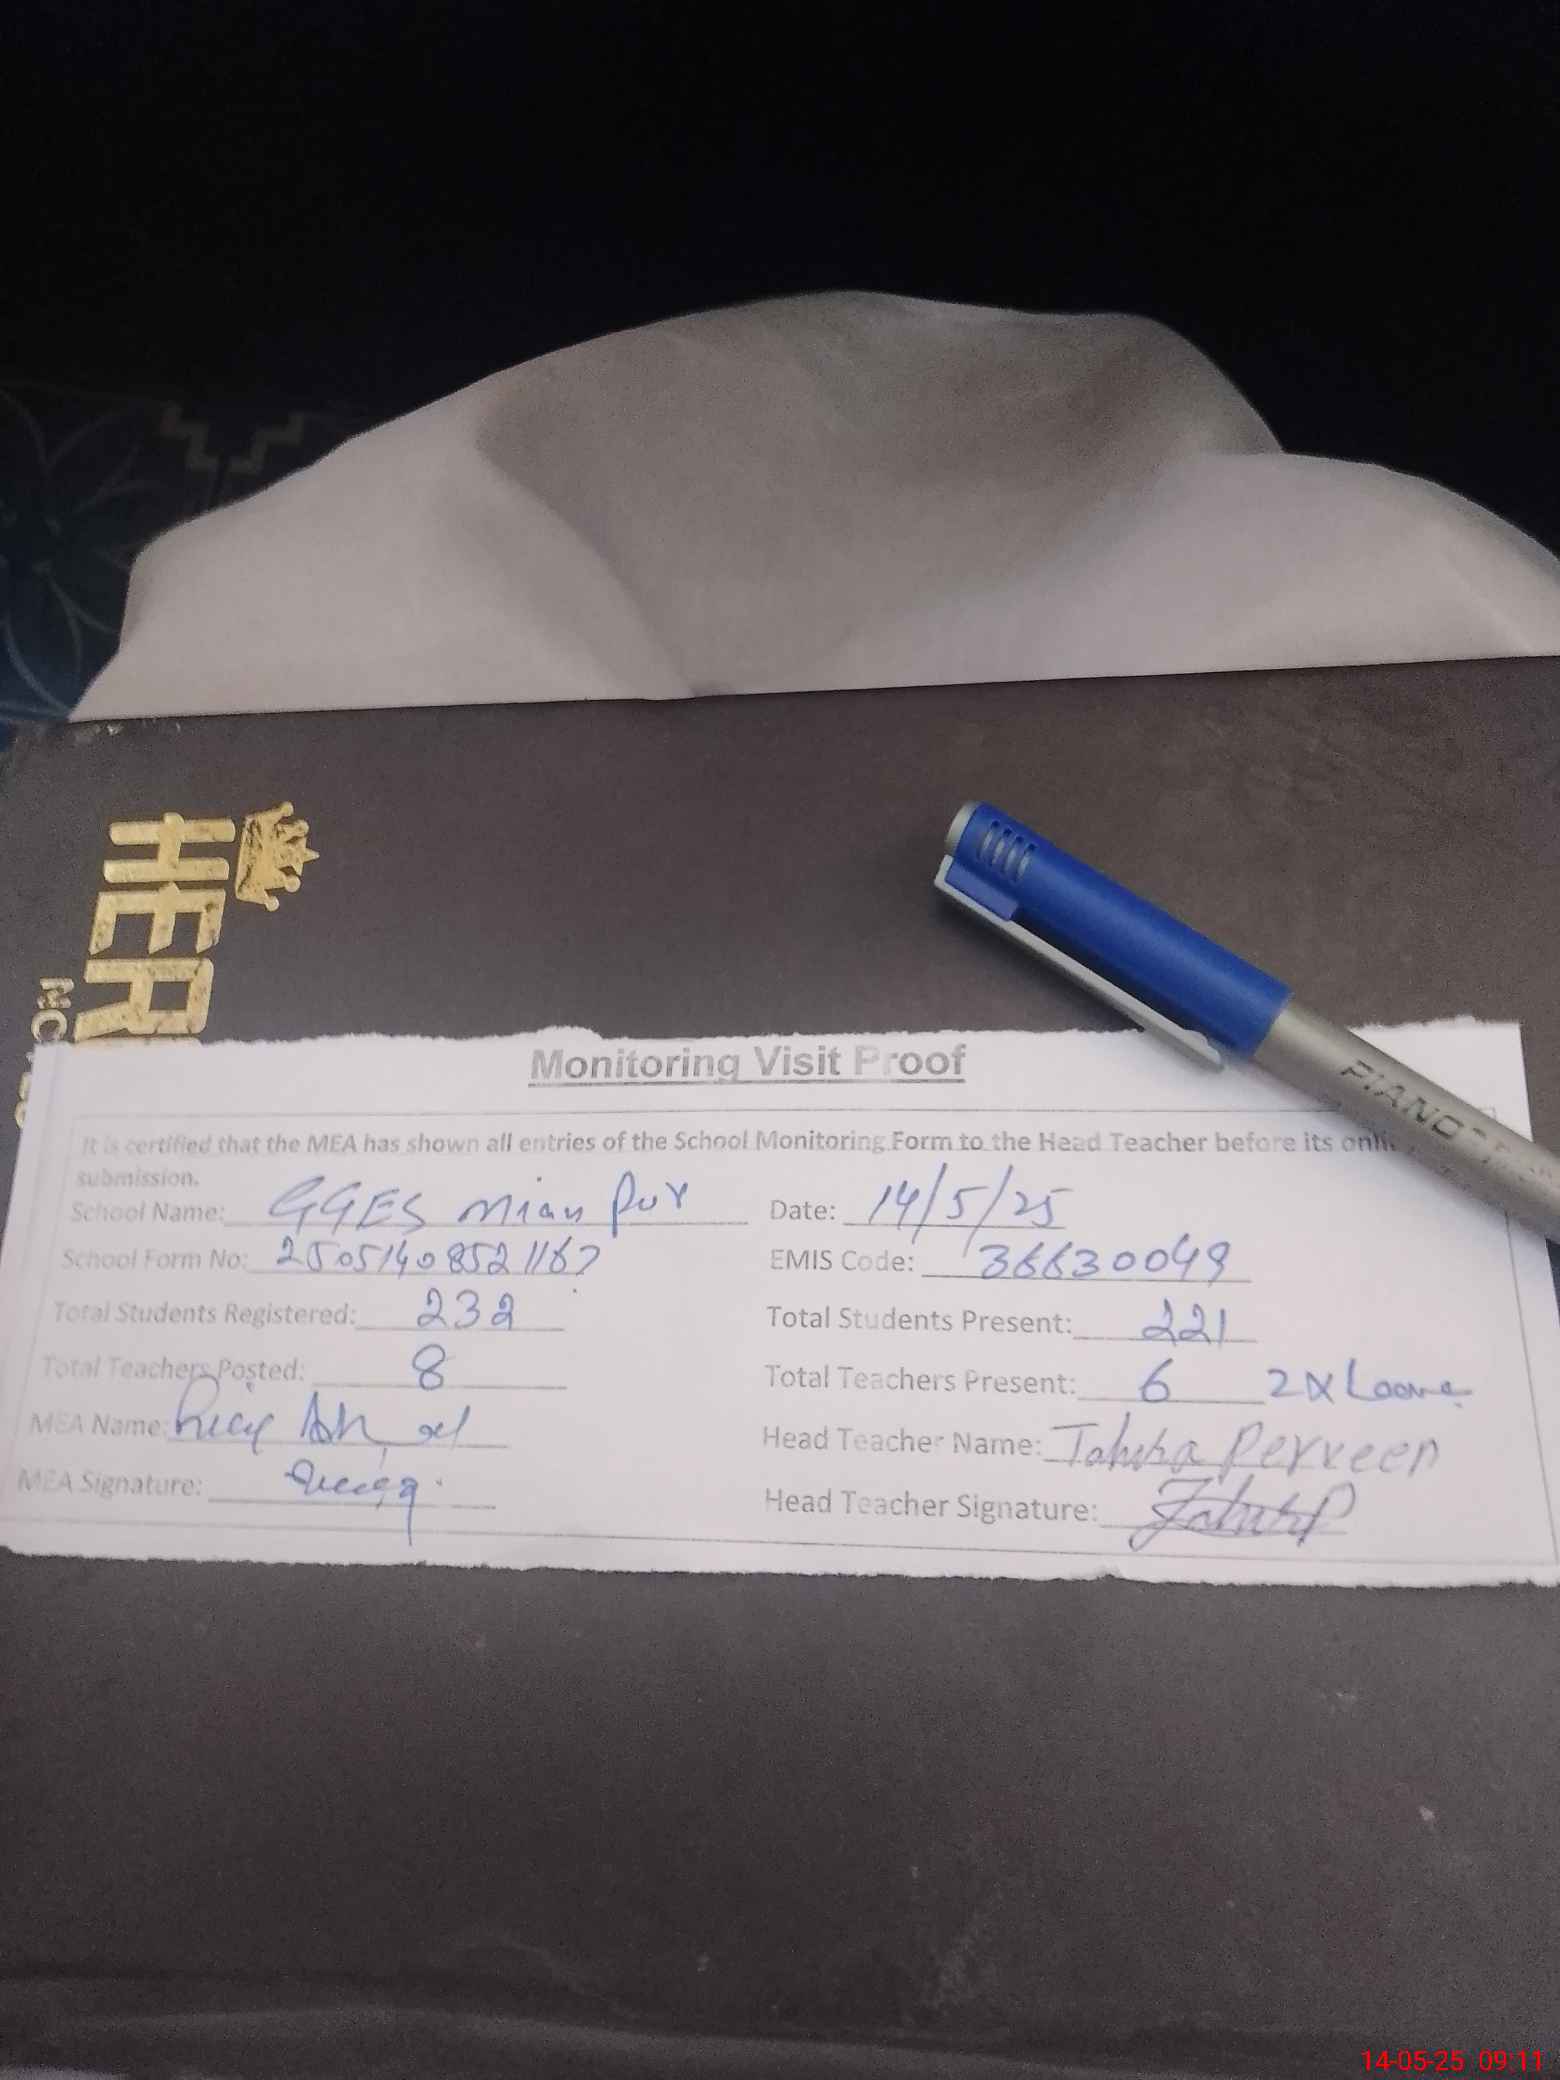 HER
Monitoring Visit Proof
It is certified that the MEA has shown all entries of the School Monitoring Form to the Head Teacher before its onli
submission.
School Name: GGES mian Pur Date: 14/5/25
School Form No: 2505140852116 EMIS Code: 36630049
Total Students Registered: 232 Total Students Present: 221
Total Teachers Posted: 8 Total Teachers Present: 6 2x Leave
MEA Name: Head Teacher Name: Tahira Perveen
MEA Signature: Head Teacher Signature: TahiraP
PIANO
14-05-25 09:11